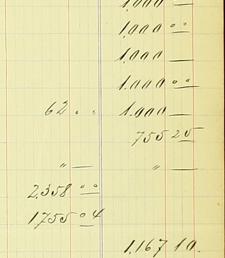 1,000 —
1,000 00
1,000 —
1,000 00
62 . . 1,000 —
755 25
" — " —
2,358 00
1755 04
1,167 10.